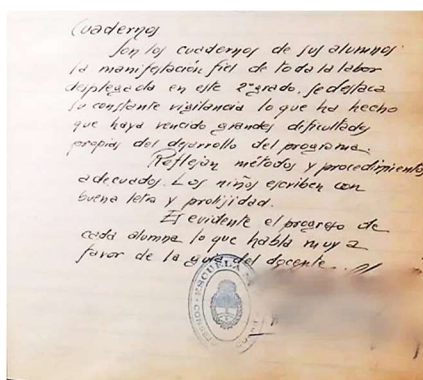 Cuadernos
Son los cuadernos de sus alumnos
la manifestación fiel de toda la labor
desplegada en este 2º grado, se destaca
su constante vigilancia lo que ha hecho
que haya vencido grandes dificultades
propias del desarrollo del programa.
Reflejan métodos y procedimientos
adecuados. Los niños escriben con
buena letra y prolijidad.
Es evidente el progreso de
cada alumno lo que habla muy a
favor de la guía del docente.
ESCUELA